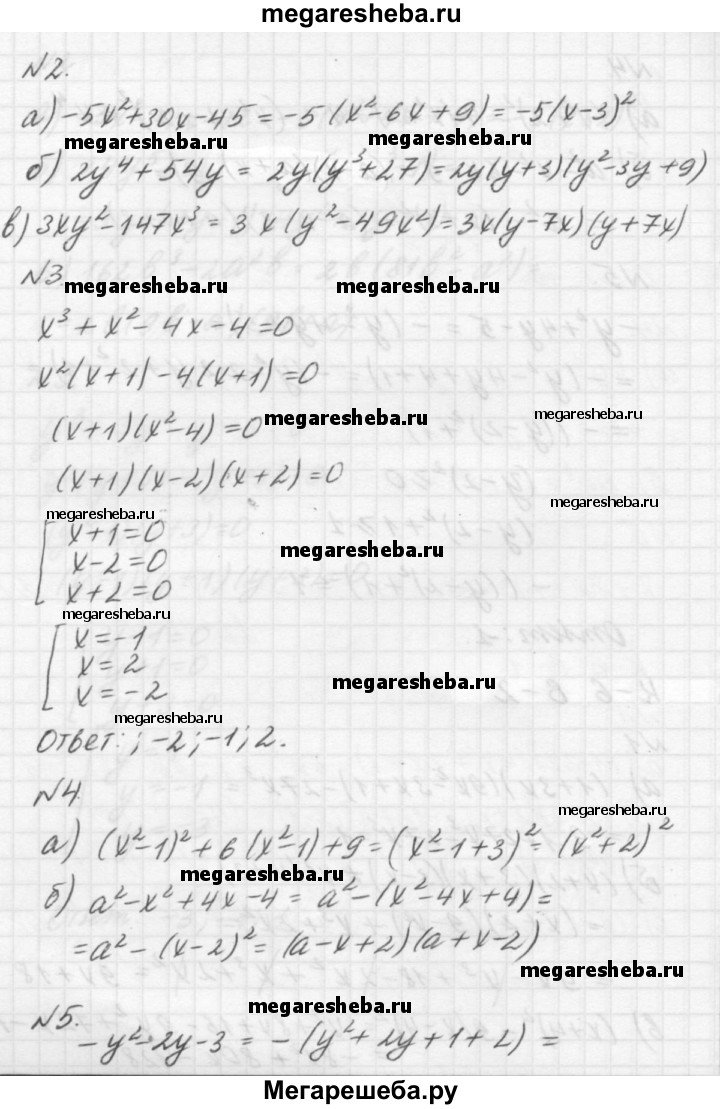 megaresheba.ru
№2.
а) -5x²+30x-45 = -5(x²-6x+9) = -5(x-3)²
megaresheba.ru megaresheba.ru
б) 2y⁴+54y = 2y(y³+27) = 2y(y+3)(y²-3y+9)
в) 3xy²-147x³ = 3x(y²-49x²) = 3x(y-7x)(y+7x)
№3
megaresheba.ru megaresheba.ru
x³+x²-4x-4=0
x²(x+1)-4(x+1)=0
(x+1)(x²-4)=0
megaresheba.ru megaresheba.ru
(x+1)(x-2)(x+2)=0
megaresheba.ru
megaresheba.ru
x+1=0
x-2=0
megaresheba.ru
x+2=0
megaresheba.ru
x=-1
x=2
x=-2
megaresheba.ru
megaresheba.ru
Ответ: ; -2; -1; 2.
№4.
megaresheba.ru
а) (x²-1)²+6(x²-1)+9 = (x²-1+3)² = (x²+2)²
megaresheba.ru
б) a²-x²+4x-4 = a²-(x²-4x+4) =
= a²-(x-2)² = (a-x+2)(a+x-2)
megaresheba.ru
megaresheba.ru
№5.
-y²-2y-3 = -(y²+2y+1+2) =
Мегарешеба.ру